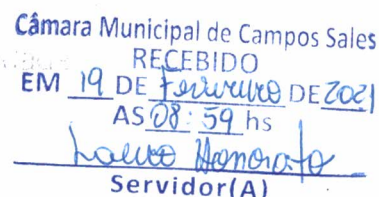 Câmara Municipal de Campos Sales
RECEBIDO
EM 19 DE Fevereiro DE 2021
AS 08:59 hs
Honorato
Servidor(A)